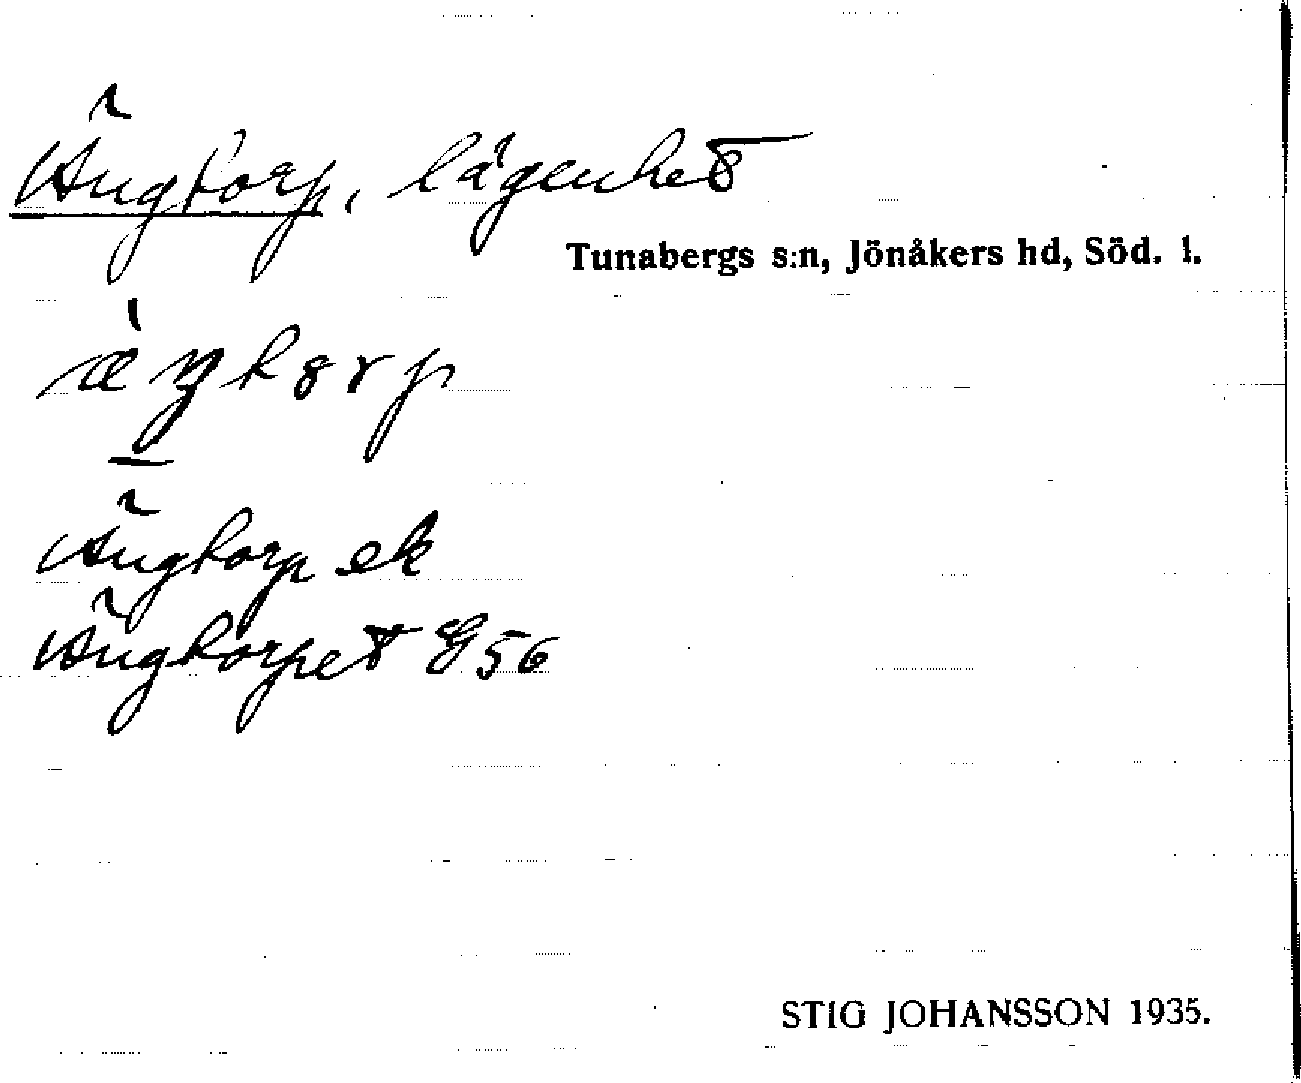 Ängtorp, lägenhet
Tunabergs s:n, Jönåkers hd, Söd. l.
æ̀ŋtorp
Ängtorp ek
Ängtorpet G56
STIG JOHANSSON 1935.